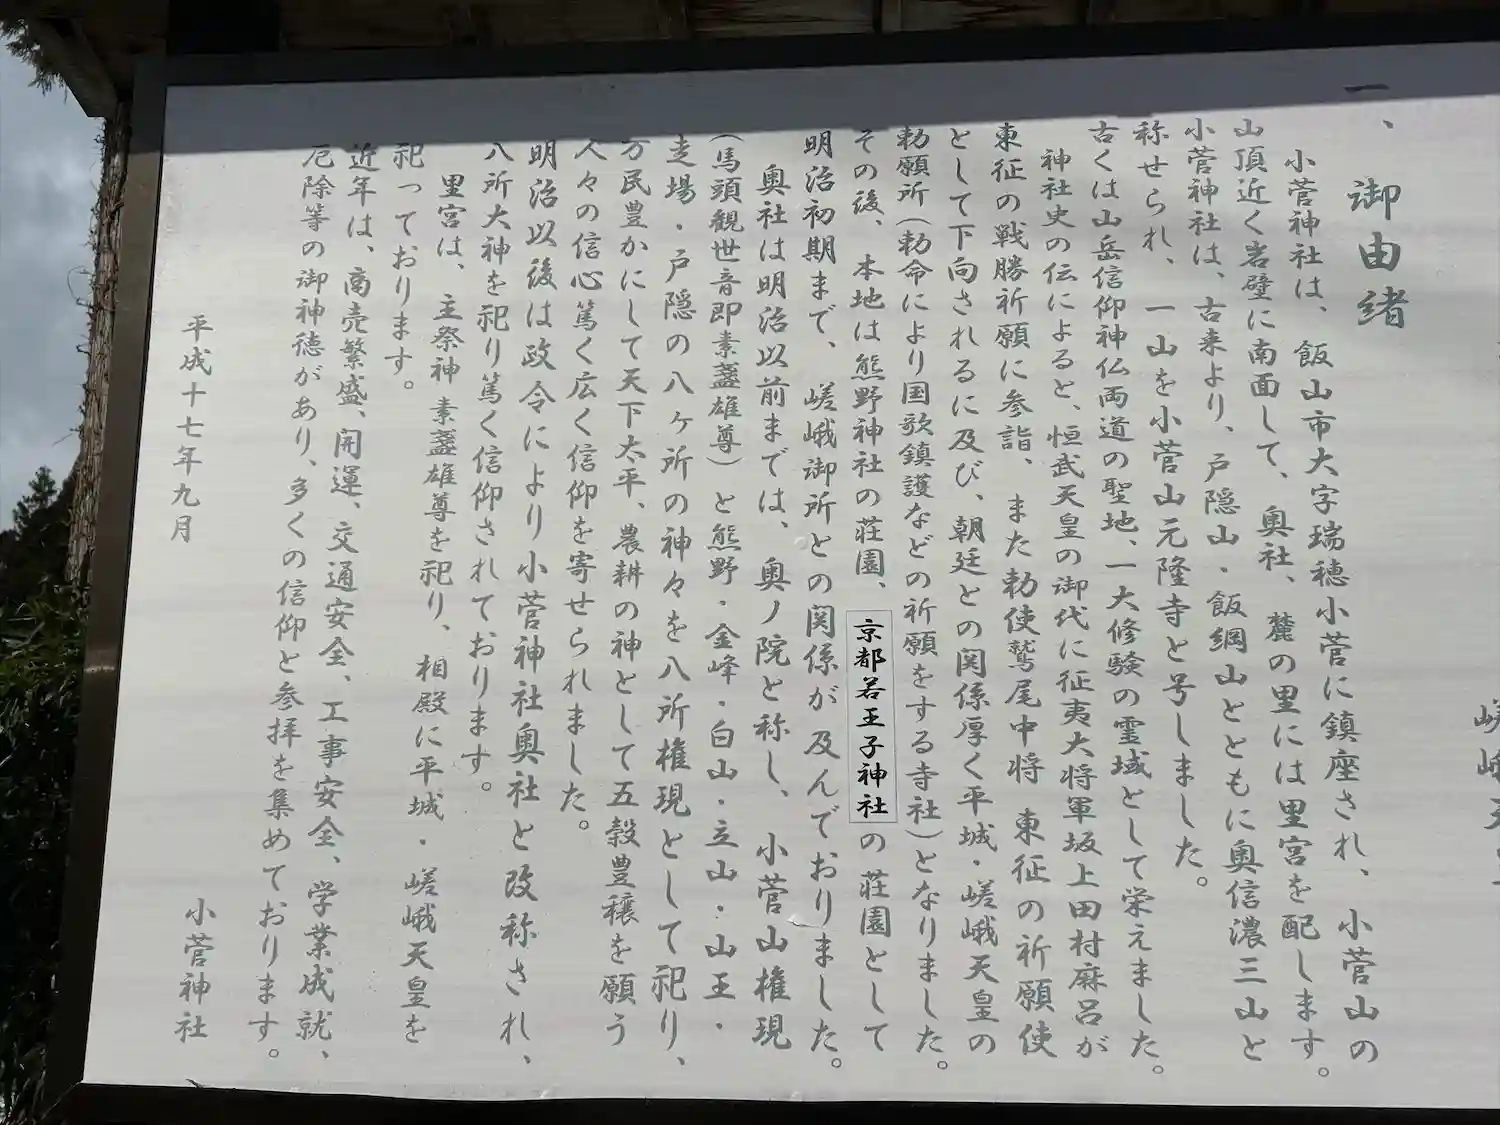 嵯峨天
一、御由緒
小菅神社は、飯山市大字瑞穂小菅に鎮座され、小菅山の
山頂近く岩壁に南面して、奥社、麓の里には里宮を配します。
小菅神社は、古来より、戸隠山・飯綱山とともに奥信濃三山と
称せられ、一山を小菅山元隆寺と号しました。
古くは山岳信仰神仏両道の聖地、一大修験の霊域として栄えました。
神社史の伝によると、恒武天皇の御代に征夷大将軍坂上田村麻呂が
東征の戦勝祈願に参詣、また勅使鷲尾中将東征の祈願使
として下向されるに及び、朝廷との関係厚く平城・嵯峨天皇の
勅願所(勅命により国歌鎮護などの祈願をする寺社)となりました。
その後、本地は熊野神社の荘園、京都若王子神社の荘園として
明治初期まで、嵯峨御所との関係が及んでおりました。
奥社は明治以前までは、奥ノ院と称し、小菅山権現
(馬頭観世音即素盞雄尊)と熊野・金峰・白山・立山・山王・
走場・戸隠の八ヶ所の神々を八所権現として祀り、
万民豊かにして天下太平、農耕の神として五穀豊穣を願う
人々の信心篤く広く信仰を寄せられました。
明治以後は政令により小菅神社奥社と改称され、
八所大神を祀り篤く信仰されております。
里宮は、主祭神 素盞雄尊を祀り、相殿に平城・嵯峨天皇を
祀っております。
近年は、商売繁盛、開運、交通安全、工事安全、学業成就、
厄除等の御神徳があり、多くの信仰と参拝を集めております。
平成十七年九月
小菅神社